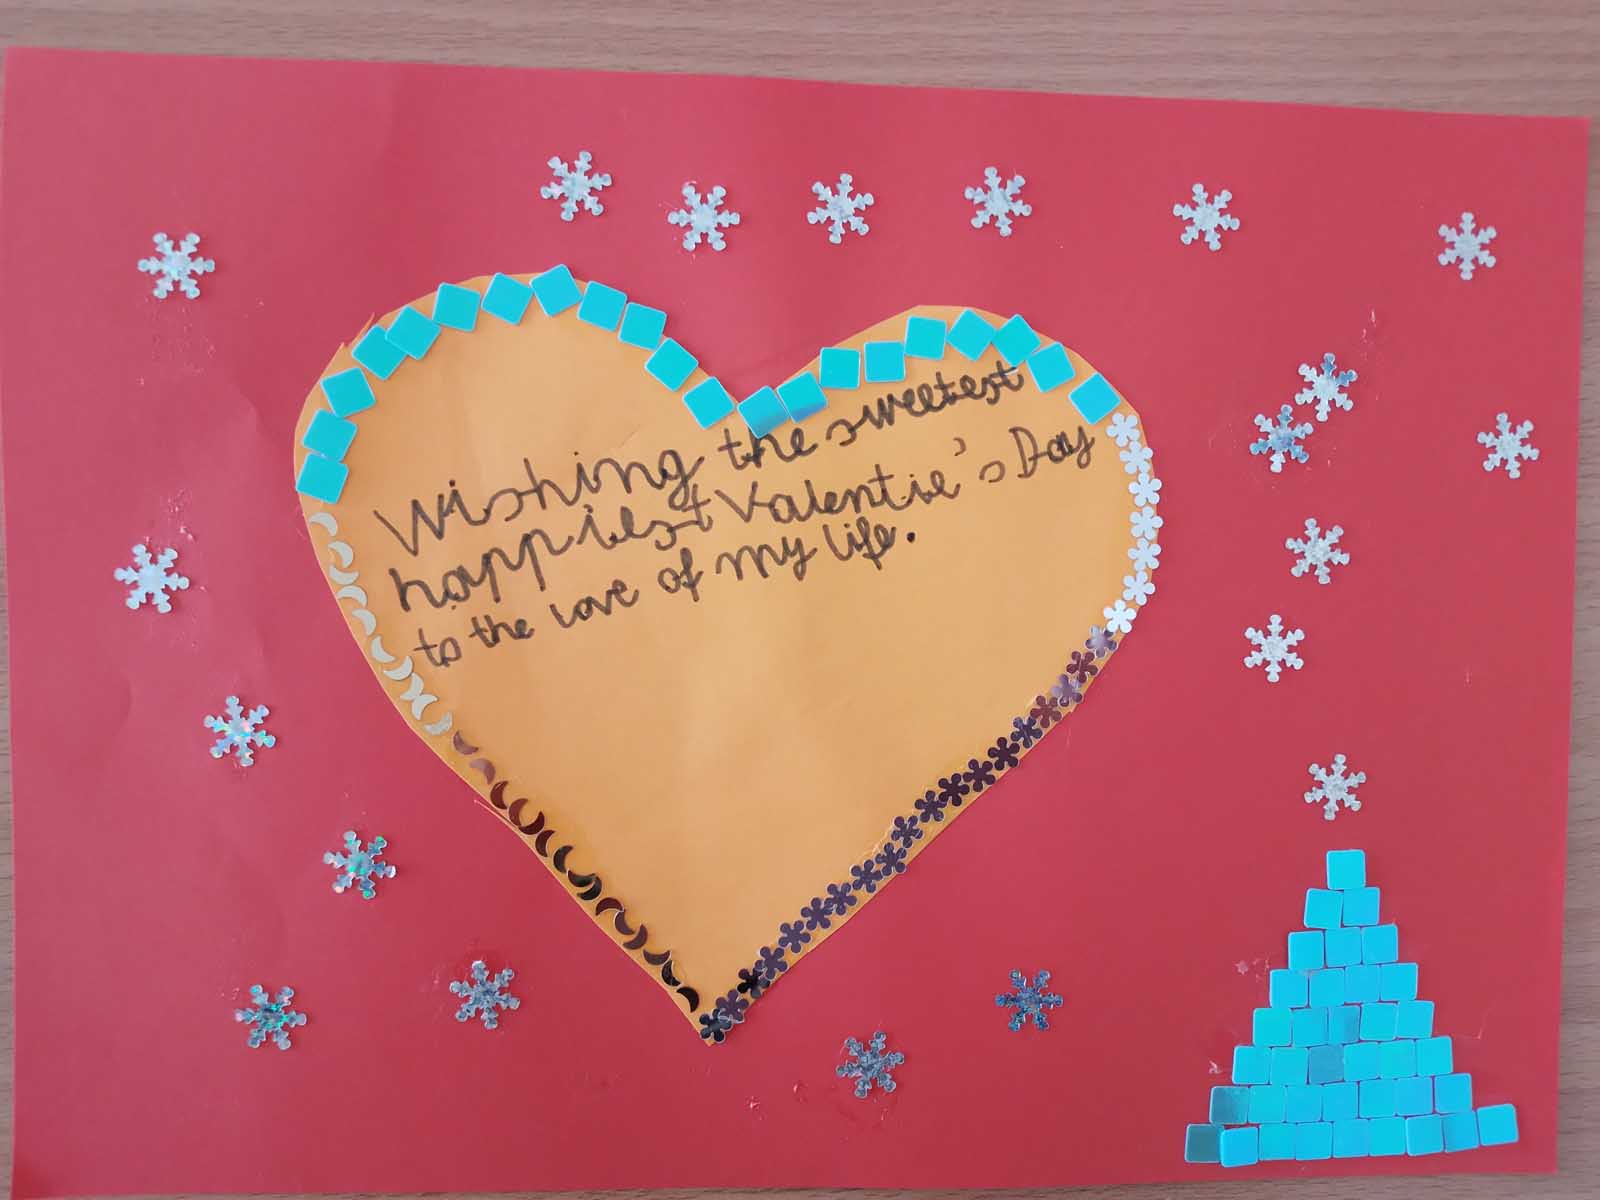 Wishing the sweetest
happiest Valentie's Day
to the love of my life.